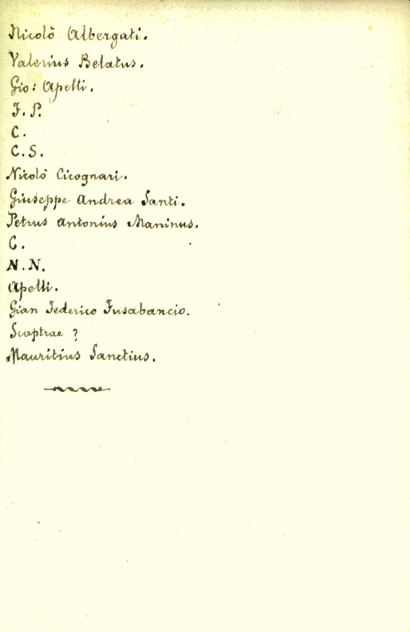 Nicolò Albergati.
Valerius Belatus.
Gio: Apelli.
F. P.
C.
C. S.
Nicolò Cicognari.
Giuseppe Andrea Santi.
Petrus Antonius Maninus.
C.
N. N.
Apelli.
Gian Federico Fusabancio.
Scaptrae ?
Mauritius Sanctius.